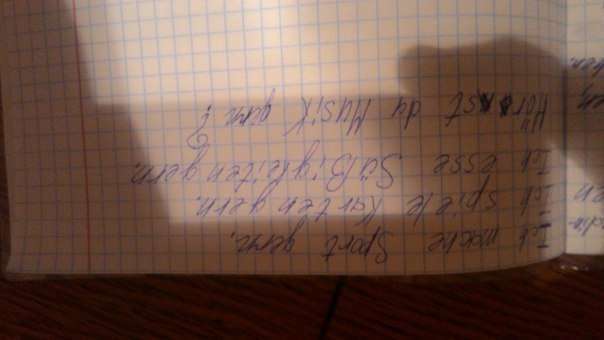 Ich mache Sport gern.
Ich spiele Karten gern.
Ich esse Süßigkeiten gern.
Hörst du Musik gern?